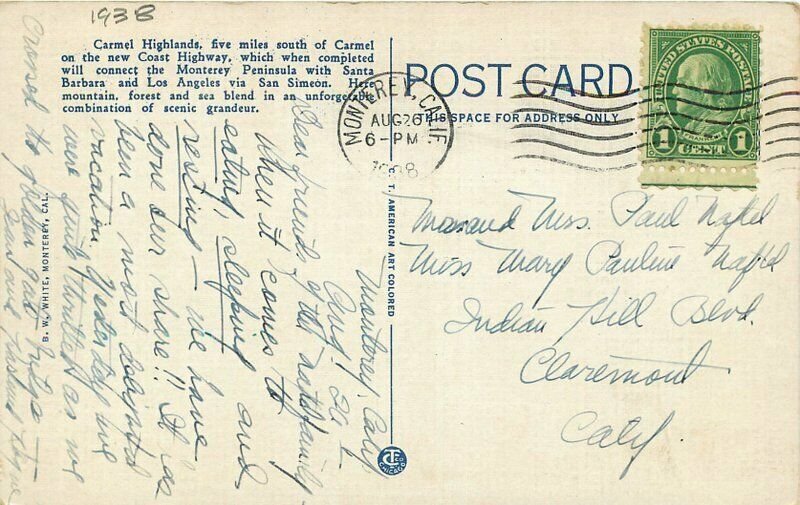 1938
Carmel Highlands, five miles south of Carmel
on the new Coast Highway, which when completed
will connect the Monterey Peninsula with Santa
Barbara and Los Angeles via San Simeon. Here
mountain, forest and sea blend in an unforgettable
combination of scenic grandeur.
POST CARD
THIS SPACE FOR ADDRESS ONLY
MONTEREY, CALIF.
AUG 26
6-PM
1938
UNITED STATES POSTAGE
FRANKLIN
1 CENT 1
Monterey, Calif
Aug. 26
Dear friends of the family
When it comes to
eating, sleeping and
resting – we have
done our share!! It has
been a most delightful
vacation. Yesterday we
were quite thrilled as we
crossed the golden gate bridge –
Love
Mr and Mrs. Paul
Miss Mary Pauline
Indian Hill Blvd.
Claremont
Calif
B. W. WHITE, MONTEREY, CAL.
C. T. AMERICAN ART COLORED
CT CO CHICAGO